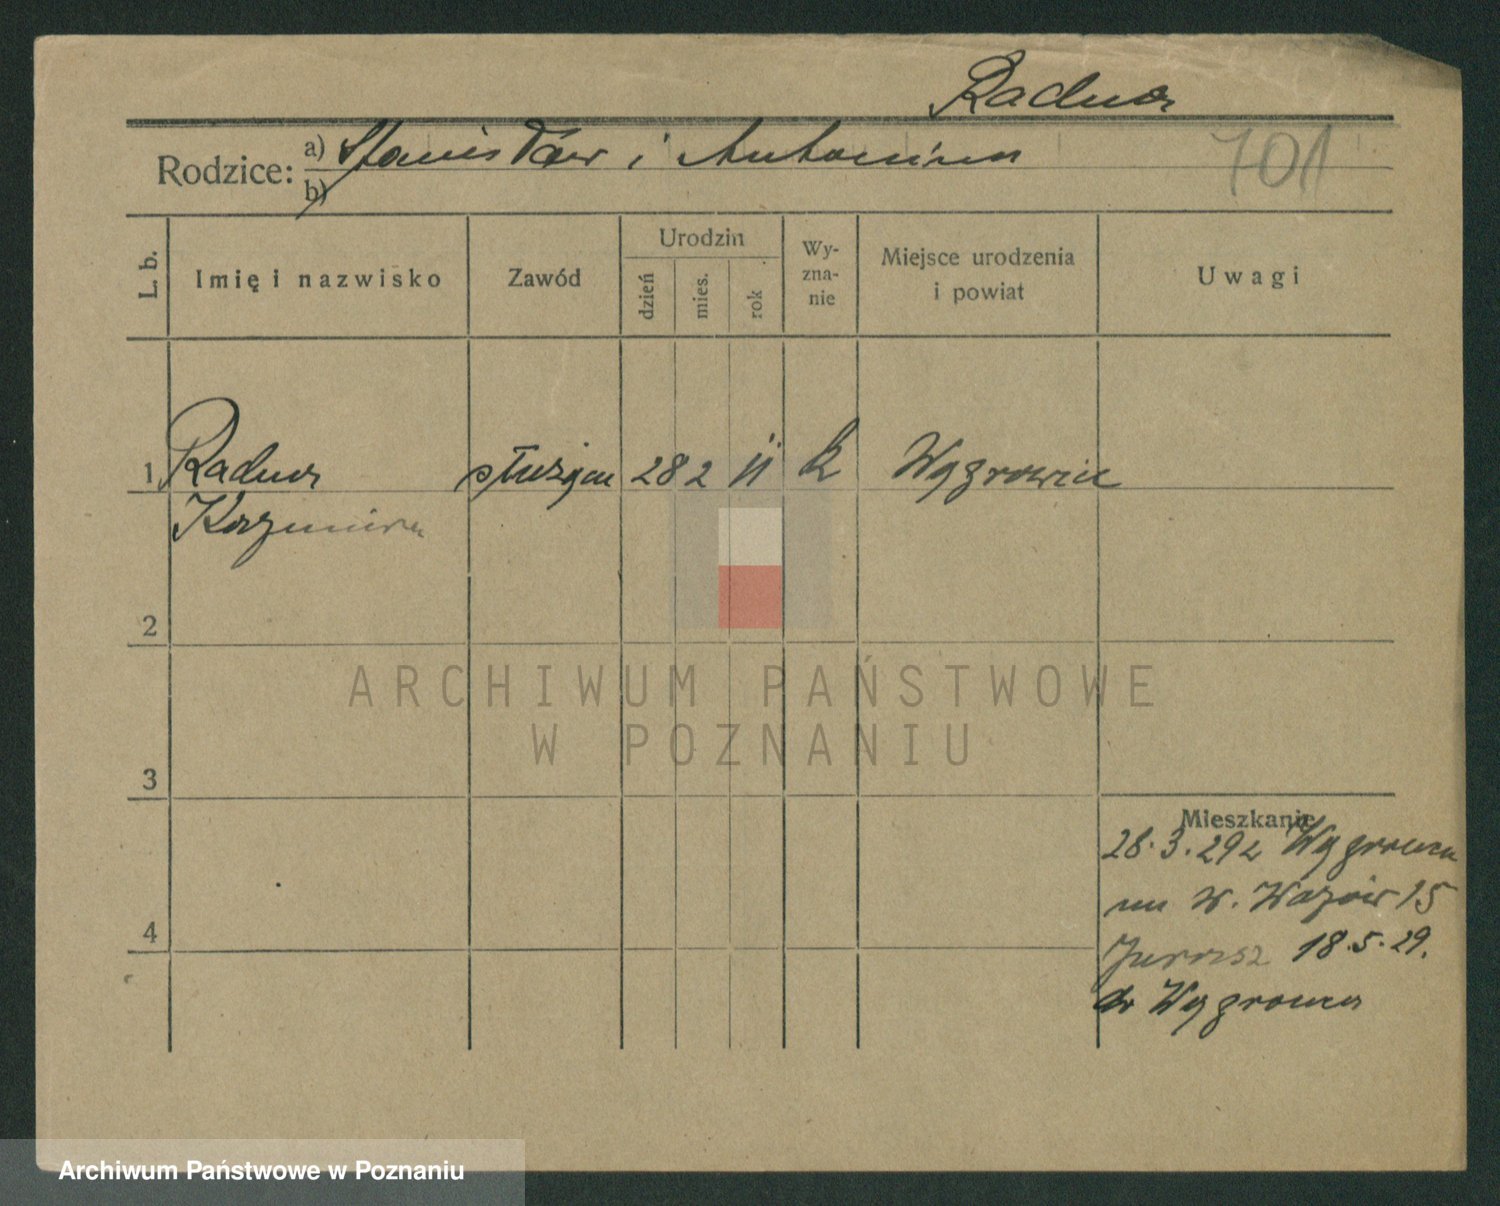 Radna
Rodzice: a) Stanisław i Antonina
b)
701
L. b. Imię i nazwisko Zawód Urodzin dzień mies. rok Wy-zna-nie Miejsce urodzenia i powiat Uwagi
1 Radna służąca 28 2 11 k Wągrowiec
Kazimiera
2
ARCHIWUM PAŃSTWOWE
W POZNANIU
3
Mieszkanie
28.3.29 z Wągrowca
na W. Wazów 15
18.5.29.
do Wągrowca
4
Archiwum Państwowe w Poznaniu